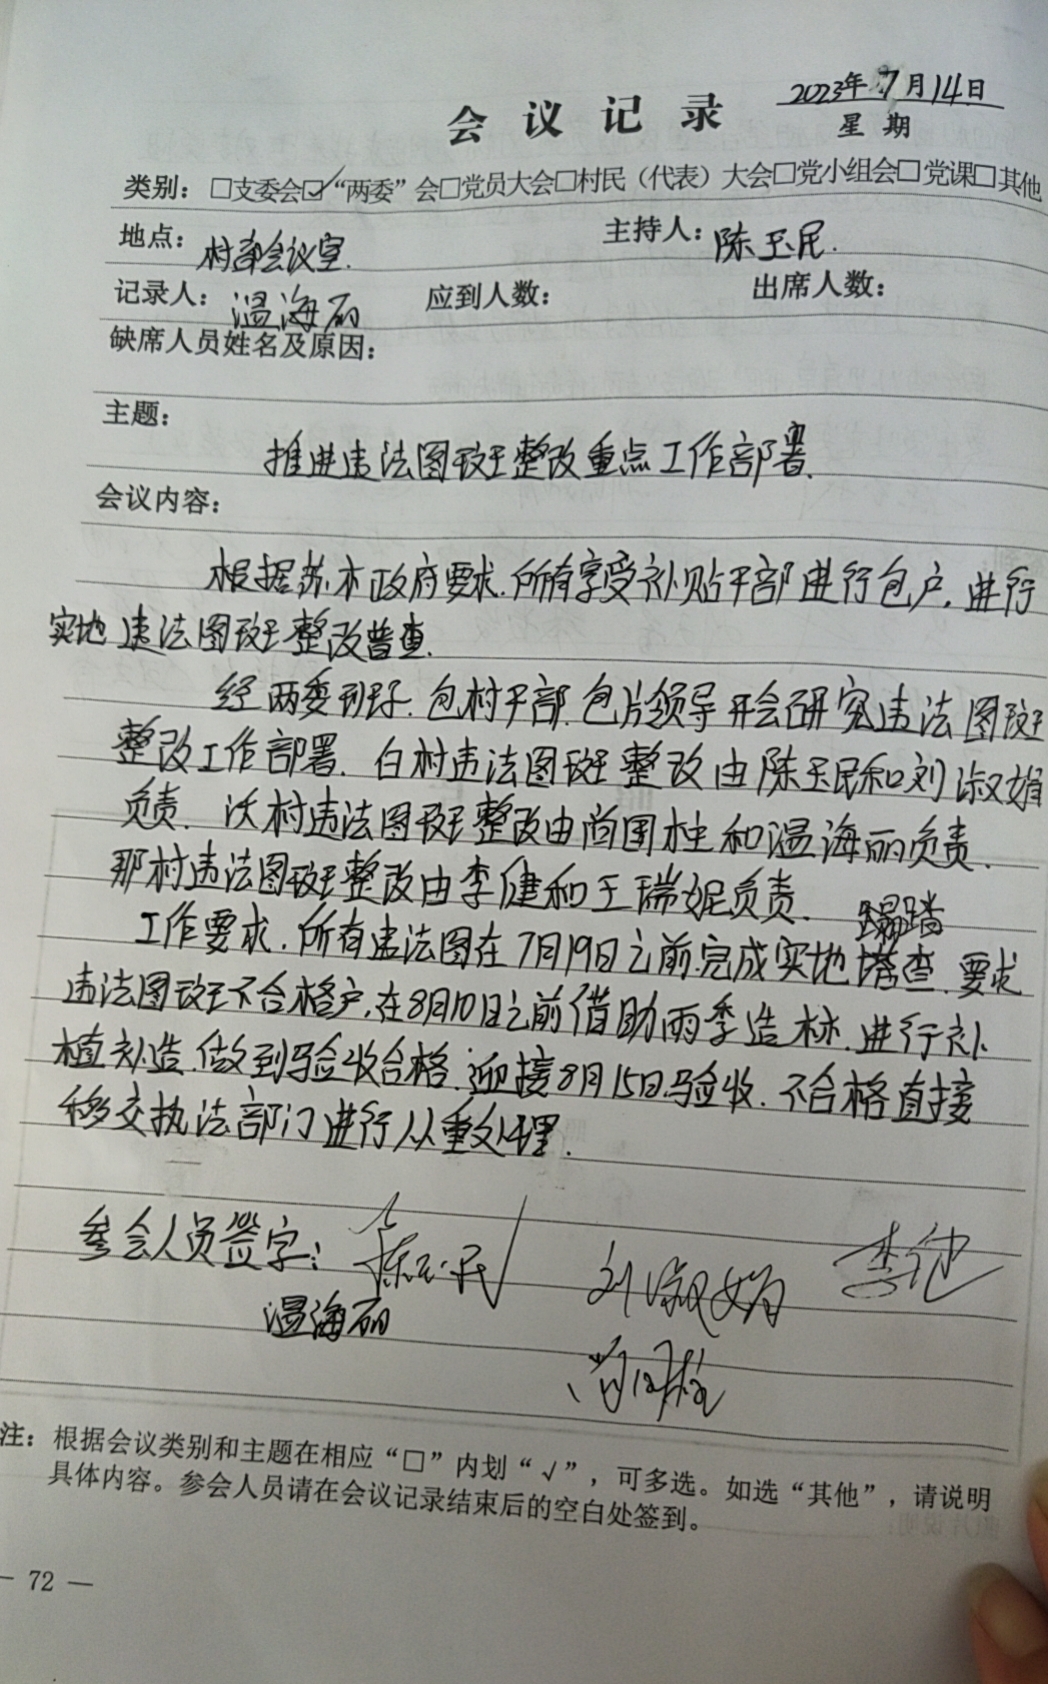 2023年7月14日
会议记录
星期
类别：□支委会☑“两委”会□党员大会□村民（代表）大会□党小组会□党课□其他
地点：村部会议室.
主持人：陈玉民.
记录人：温海丽
应到人数：
出席人数：
缺席人员姓名及原因：
主题：
推进违法图斑整改重点工作部署.
会议内容：
根据苏木政府要求.所有享受补贴干部进行包户,进行
实地违法图斑整改普查.
经两委班子.包村干部.包片领导开会研究违法图斑
整改工作部署.白村违法图斑整改由陈玉民和刘淑娟
负责.沃村违法图斑整改由尚国柱和温海丽负责.
那村违法图斑整改由李健和王瑞妮负责.
蹋踏
工作要求.所有违法图在7月19日之前.完成实地查.要求
违法图斑不合格户,在8月10日之前借助雨季造林.进行补
植补造.做到验收合格.迎接8月15日验收.不合格直接
移交执法部门进行从重处理.
参会人员签字：陈玉民 刘淑娟 李健
温海丽
尚国柱
注：根据会议类别和主题在相应“□”内划“√”，可多选。如选“其他”，请说明
具体内容。参会人员请在会议记录结束后的空白处签到。
— 72 —